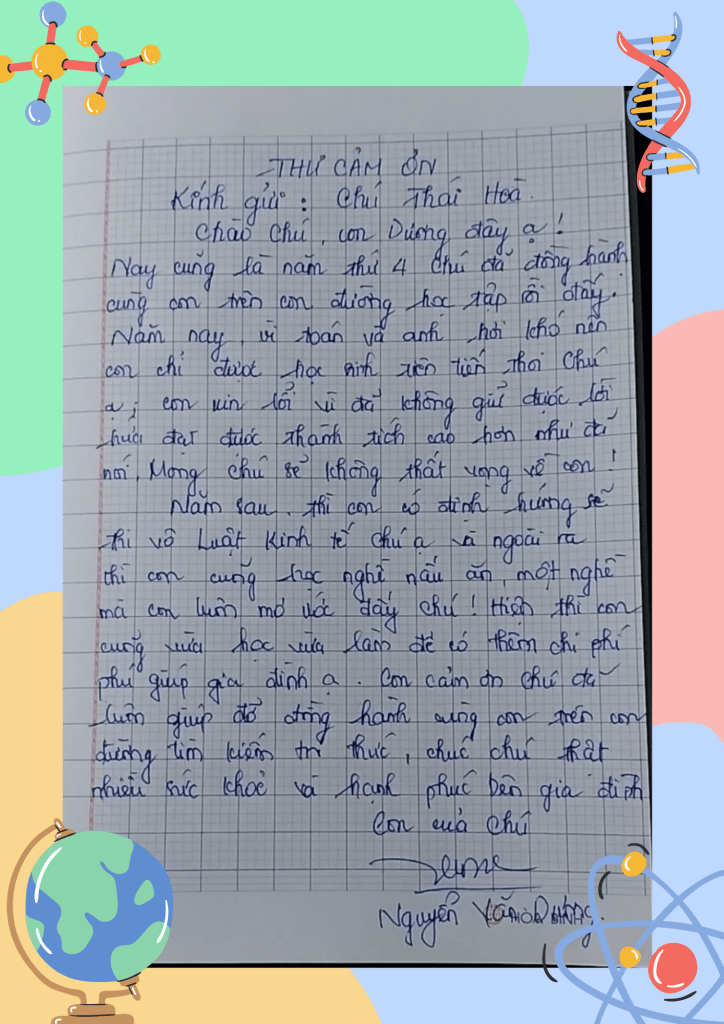 THƯ CẢM ƠN
Kính gửi : Chú Thái Hoà.
Chào Chú, con Dương đây ạ!
Nay cũng là năm thứ 4 Chú đã đồng hành
cùng con trên con đường học tập rồi đấy.
Năm nay, vì toán và anh hơi khó nên
con chỉ được học sinh tiên tiến thôi Chú
ạ; con xin lỗi vì đã không giữ được lời
hứa đạt được thành tích cao hơn như đã
nói. Mong chú sẽ không thất vọng về con!
Năm sau, thì con có định hướng sẽ
thi vô Luật Kinh tế chú ạ và ngoài ra
thì con cũng học nghề nấu ăn, một nghề
mà con luôn mơ ước đấy chú! Hiện thì con
cũng vừa học vừa làm để có thêm chi phí
phụ giúp gia đình ạ. Con cảm ơn chú đã
luôn giúp đỡ đồng hành cùng con trên con
đường tìm kiếm tri thức, chúc chú thật
nhiều sức khoẻ và hạnh phúc bên gia đình
Con của Chú
Nguyễn Văn